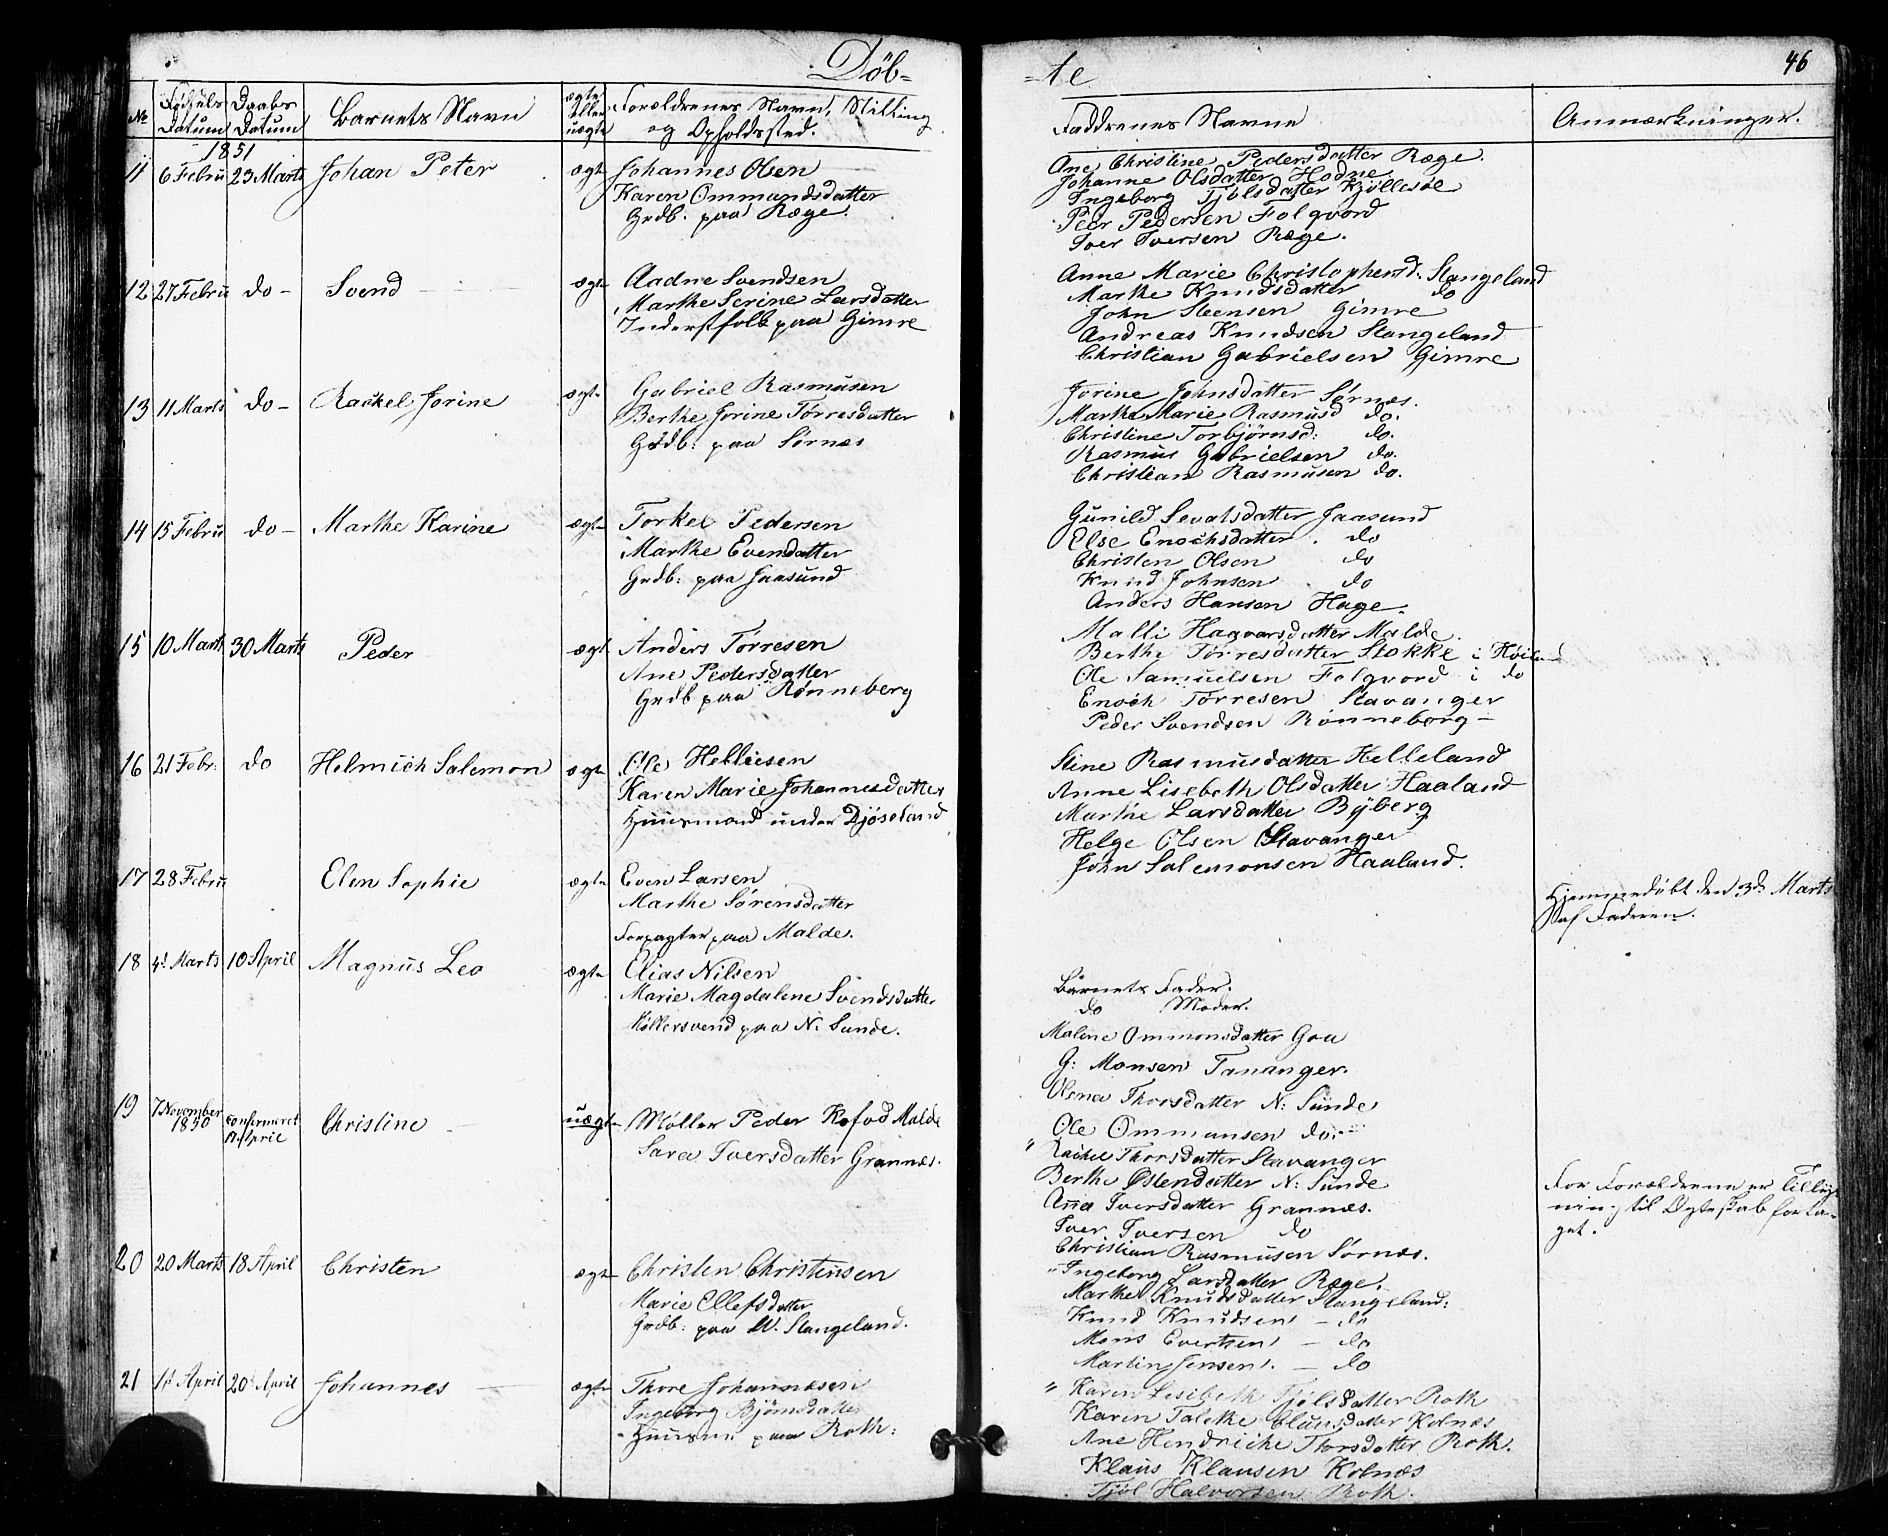 Døb=
=te
46
No
Fødsels Datum
Daabs Datum
Barnets Navn
ægte Eller uægte
Forældrenes Navn, Stilling og Opholdssted.
Faddrenes Navne
Anmærkninger.
1851
11 6 Febru 23 Marts Johan Peter ægt Johannes Olsen
Karen Ommundsdatter
Grdb. paa Ræge.
Ane Christine Pedersdatter Ræge.
Johanne Olsdatter Hodne
Ingeborg Tjølsdatter Kjøllesøe
Peer Pedersen Folqvord
Iver Iversen Ræge.
12 27 Febru do - Svend ægt Aadne Svendsen
Marthe Serine Larsdatter
Inderstfolk paa Gimre
Anne Marie Christophersd: Stangeland
Marthe Knudsdatter do
John Steensen Gimre
Andreas Knudsen Stangeland
Christian Gabrielsen Gimre
13 11 Marts do - Rachel Jorine ægt Gabriel Rasmusen
Berthe Jorine Torresdatter
Grdb: paa Sørnæs
Jorine Johnsdatter Sørnæs.
Marthe Marie Rasmusd do.
Christine Torbjørnsd: do.
Rasmus Gabrielsen do.
Christian Rasmusen do.
14 15 Febru do - Marthe Karine ægte Torkel Pedersen
Marthe Evensdatter
Grdb: paa Jaasund
Gunild Sevatsdatter Jaasund
Else Enochsdatter. do
Christen Olsen do
Knud Johnsen do
Anders Hansen Hage.
15 10 Marts 30 Marts Peder ægt Anders Torresen
Ane Pedersdatter
Grdb paa Rønneberg
Malli Hagvarsdatter Malde.
Berthe Torresdatter Stokke i Høiland
Ole Samuelsen Folqvord i do
Enoch Torresen Stavanger
Peder Svendsen Rønneborg -
16 21 Febr: do Helmich Salemon ægte Ole Helliesen
Karen Marie Johannesdatter
Huusmand under Djøseland
Stine Rasmusdatter Helleland
Anne Lisebeth Olsdatter Haaland
Marthe Larsdatter Byberg
Helge Olsen Stavanger
John Salemonsen Haaland.
17 28 Febru Elen Sophie ægte Even Larsen
Marthe Sørensdatter
Forpagter paa Malde.
Hjemmedøbt den 3d. Marts
af Faderen.
18 4d. Marts 10 April Magnus Leo ægte Elias Nilsen
Marie Magdalene Svendsdatter
Møllersvend paa N: Sunde.
Barnets Fader.
do Moder.
Malene Ommonsdatter Goa
G: Monsen Tananger.
Olena Thorsdatter N: Sunde
Ole Ommunsen do.
19 7 November 1850 confirmeret 17 April Christine uægte Møller Peder Kofod Malde
Sara Iversdatter Grannæs.
" Rachel Thorsdatter Stavanger
Berthe Østensdatter N: Sunde
Anna Iversdatter Grannæs.
Iver Iversen do
Christian Rasmusen Sørnæs.
For Forældrene er Tillys-
ning til Ægteskab forta-
get.
20 20 Marts 18 April Christen ægte Christen Christensen
Marie Ellefsdatter
Grdb: paa W. Stangeland.
" Ingeborg Larsdatter Ræge.
Marthe Knudsdatter Stangeland:
Knud Knudsen - do
Mons Evertsen - do
Martin Jensen. - do
21 1st April 20d April Johannes ægte Thore Johannesen
Ingeborg Bjørnsdatter
Huusm: paa Roth:
" Karen Lisebeth Tjølsdatter Roth
Karen Taleke Clausdatter Kolnæs
Ane Hendriche Thorsdatter Roth.
Klaus Klausen Kolnæs
Tjøl Halvorsen Roth.